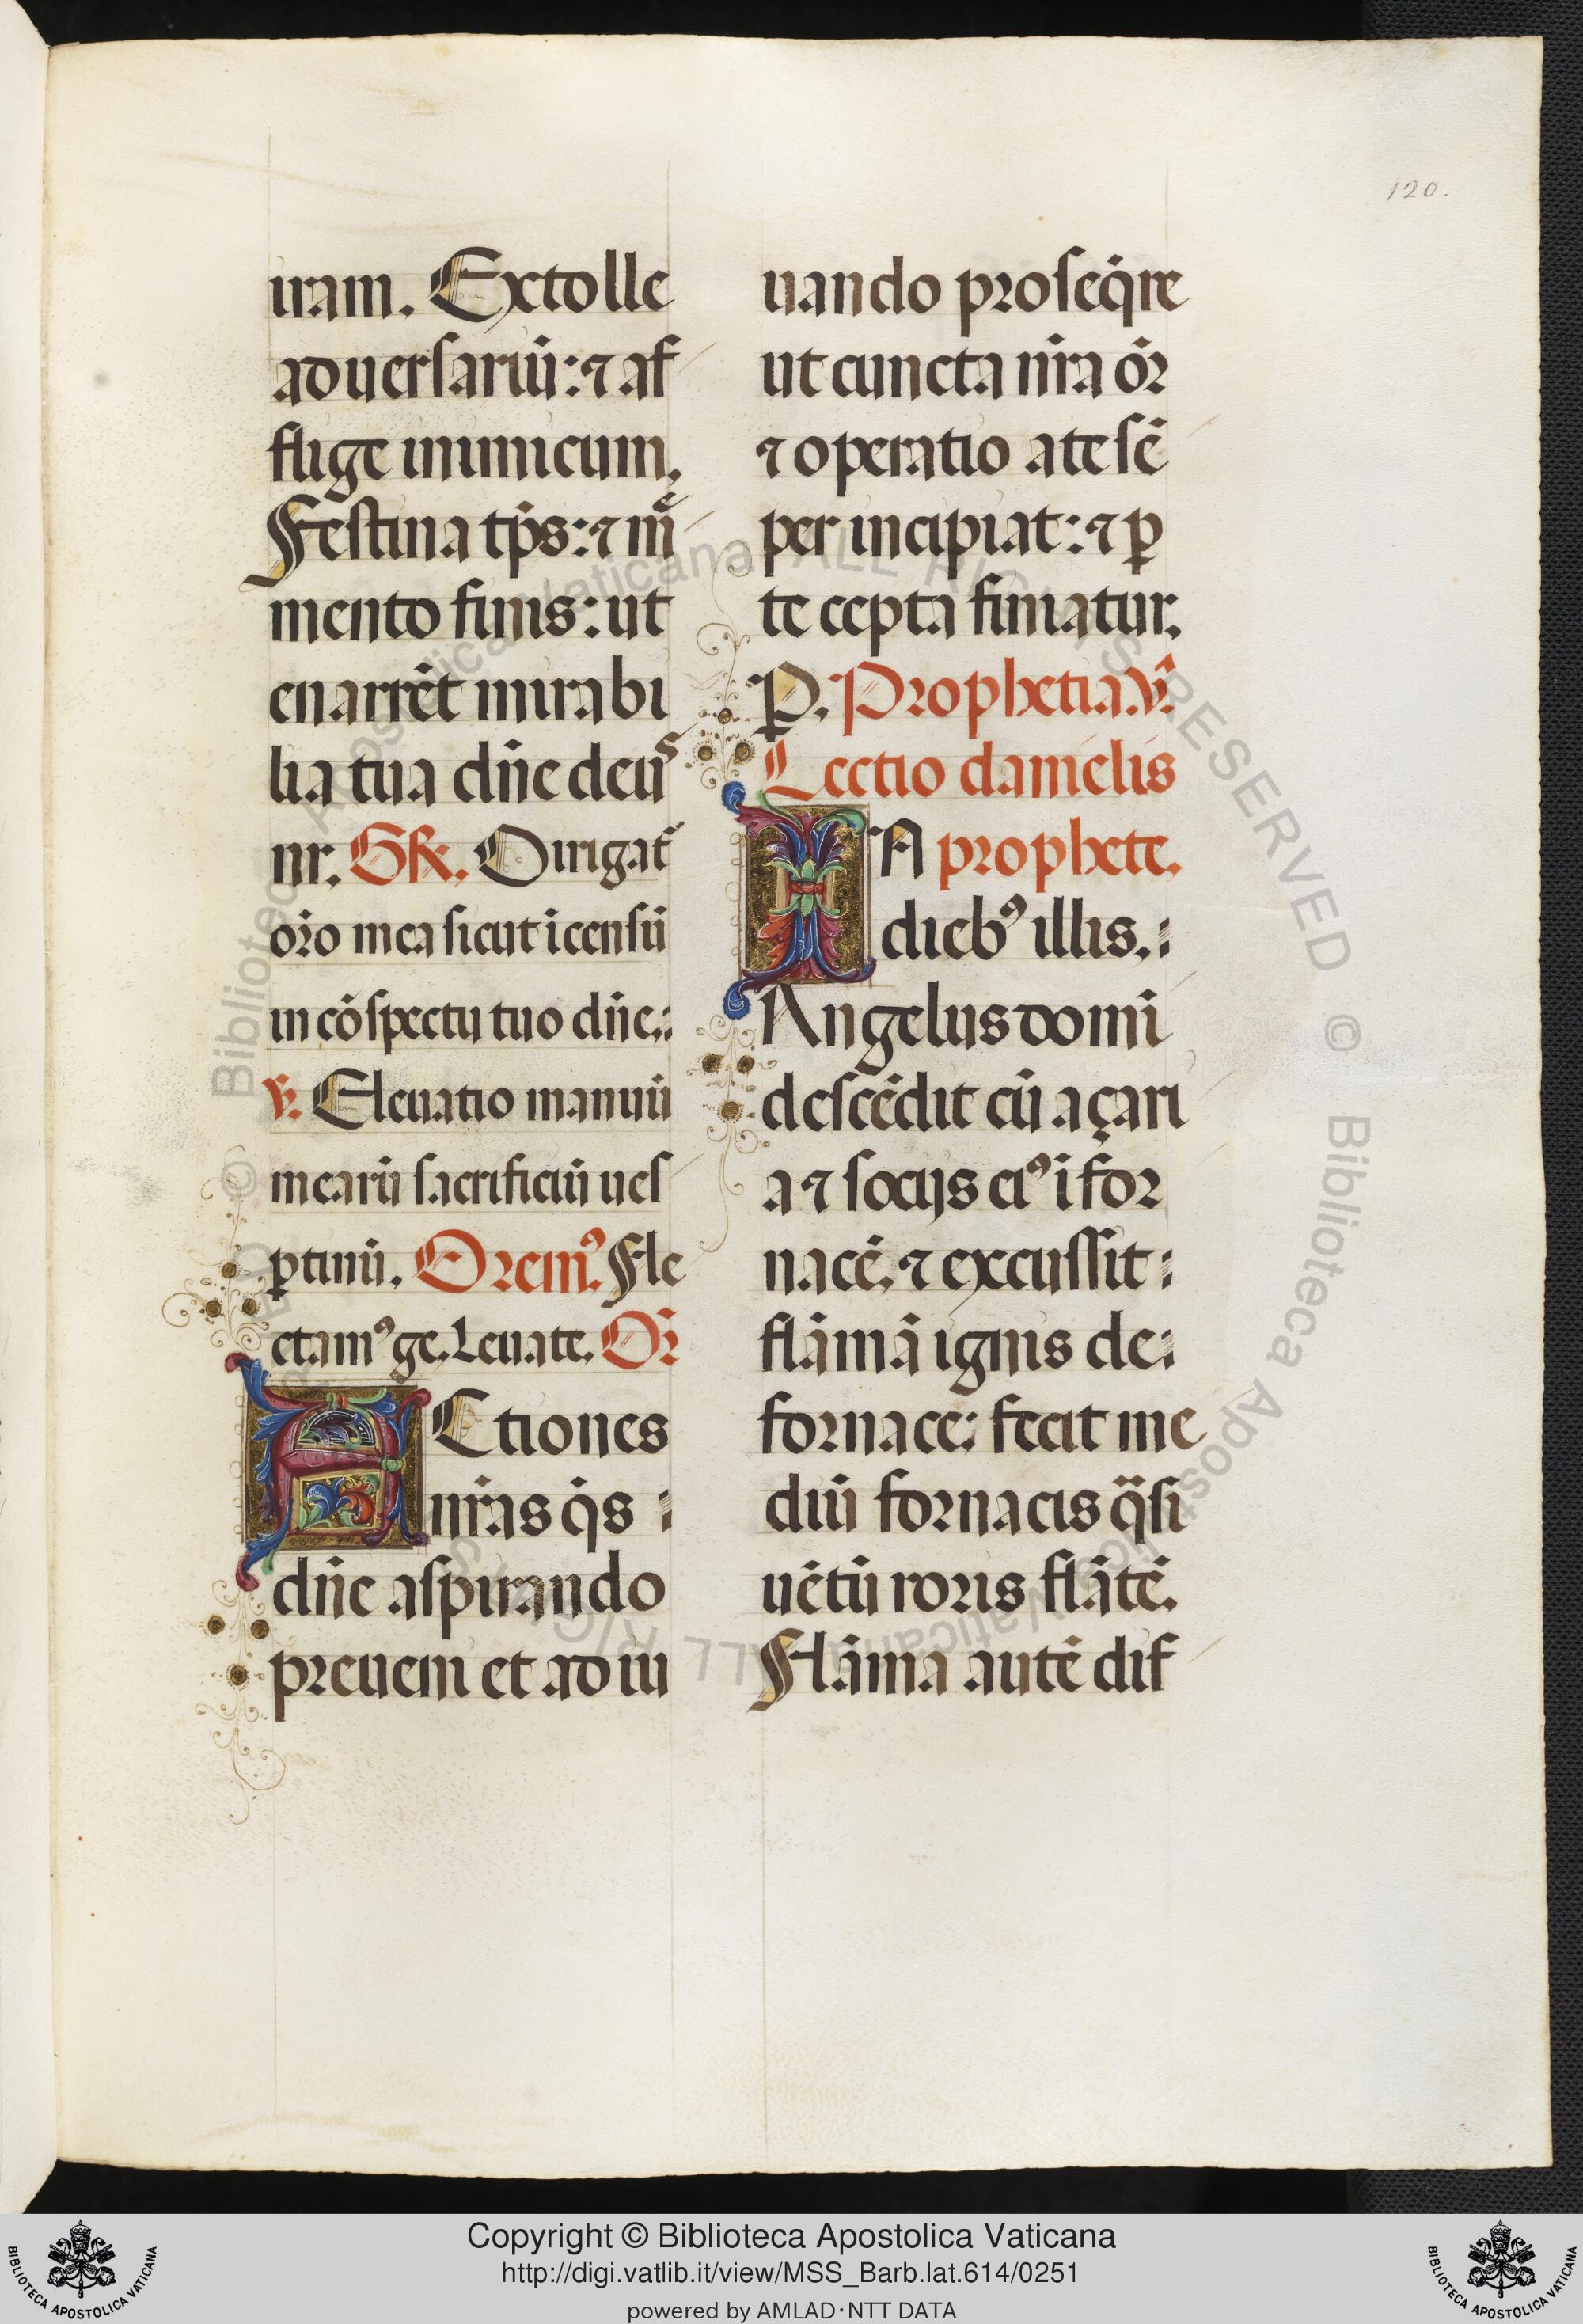 120.
iram. Extolle
aduersariū: ⁊ af
flige inimicum.
Festina tp̄s: ⁊ mē
mento finis: ut
enarrēt mirabi
lia tua dn̄e deus
nr̄. GR. Dirigat᷑
or̄o mea sicut ı̄censū
in cōspectu tuo dn̄e.:
V̄. Eleuatio manuū
mearū sacrificiū ues
ꝑtinū. Oremꝰ. Fle
ctamꝰ ge. Leuate. Or̄
ACtiones
nr̄as q̄s :
dn̄e aspirando
preueni et adiu
uando proseq̄re
ut cuncta nr̄a or̄
⁊ operatio a te sē
per incipiat: ⁊ ꝑ
te cepta finiatur.
P. Prophetia.V.
Lectio danielis
IN prophete.
diebꝰ illis.:
Angelus domī
descēdit cū açari
a ⁊ socijs eiꝰ ī for
nacē. ⁊ excussit :
flāmā ignis de:
fornace: fecit me
diū fornacis q̄si
uētū roris flātē.
Flāma autē dif
Biblioteca Apostolica Vaticana ALL RIGHTS RESERVED ©
Copyright © Biblioteca Apostolica Vaticana
http://digi.vatlib.it/view/MSS_Barb.lat.614/0251
powered by AMLAD·NTT DATA
BIBLIOTECA APOSTOLICA VATICANA
BIBLIOTECA APOSTOLICA VATICANA